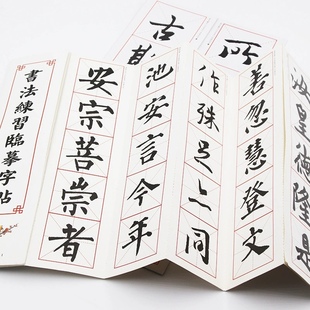 書法練習臨摹字帖
安宗菩崇者
池安言今年
作殊足六同
善忍慧登文
皇德隆是
古
所